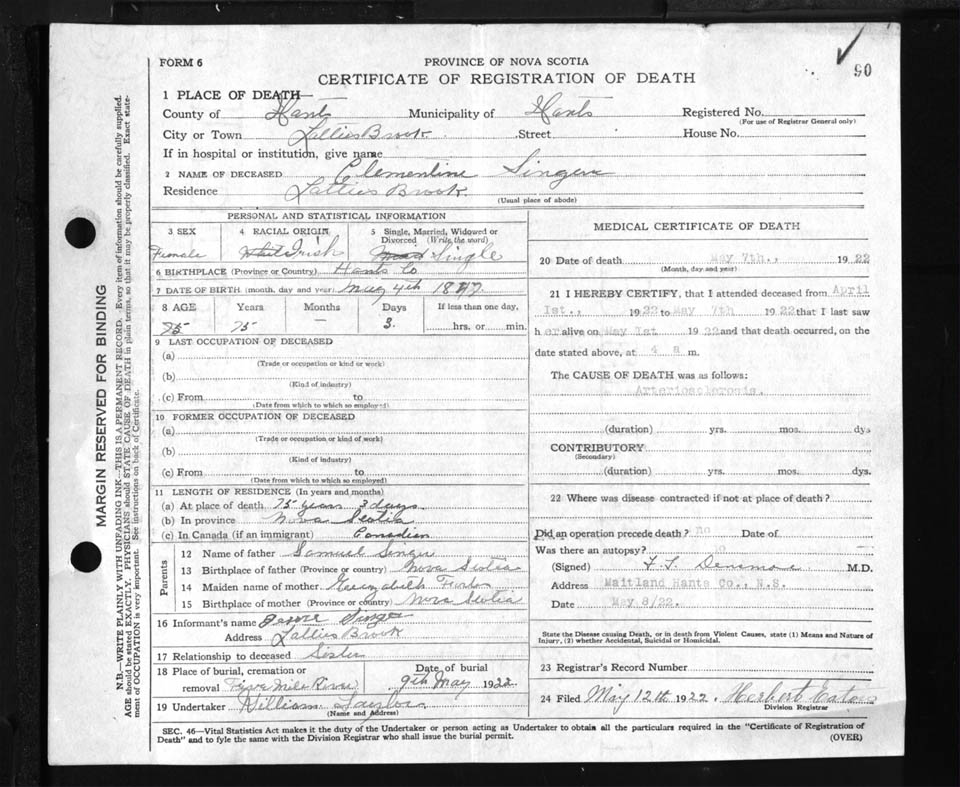 FORM 6
PROVINCE OF NOVA SCOTIA
90
CERTIFICATE OF REGISTRATION OF DEATH
1 PLACE OF DEATH—
County of Hants Municipality of Hants Registered No.
(For use of Registrar General only)
City or Town Latties Brook Street House No.
If in hospital or institution, give name
2 NAME OF DECEASED Clementine Singer
Residence Latties Brook
(Usual place of abode)
PERSONAL AND STATISTICAL INFORMATION
3 SEX 4 RACIAL ORIGIN 5 Single, Married, Widowed or Divorced (Write the word)
Female White Irish Single
6 BIRTHPLACE (Province or Country) Hants Co
7 DATE OF BIRTH (month, day and year) May 4th 1847
8 AGE Years Months Days If less than one day,
75 75 — 3 hrs. or min.
9 LAST OCCUPATION OF DECEASED
(a)
(Trade or occupation or kind of work)
(b)
(Kind of industry)
(c) From to
(Date from which to which so employed)
10 FORMER OCCUPATION OF DECEASED
(a)
(Trade or occupation or kind of work)
(b)
(Kind of industry)
(c) From to
(Date from which to which so employed)
11 LENGTH OF RESIDENCE (In years and months)
(a) At place of death 75 years 3 days
(b) In province Nova Scotia
(c) In Canada (if an immigrant) Canadian
Parents
12 Name of father Samuel Singer
13 Birthplace of father (Province or country) Nova Scotia
14 Maiden name of mother
15 Birthplace of mother (Province or country) Nova Scotia
16 Informant's name Singer
Address Latties Brook
17 Relationship to deceased Sister
18 Place of burial, cremation or removal Five Mile River Date of burial 9th May 1922
19 Undertaker William Taylor
(Name and Address)
MEDICAL CERTIFICATE OF DEATH
20 Date of death May 7th., 1922
(Month, day and year)
21 I HEREBY CERTIFY, that I attended deceased from April
1st., 1922 to May 7th 1922 that I last saw
her alive on May 1st 1922 and that death occurred, on the
date stated above, at 4 a m.
The CAUSE OF DEATH was as follows:
Arteriosclerosis.
(duration) yrs. mos. dys
CONTRIBUTORY
(Secondary)
(duration) yrs. mos. dys.
22 Where was disease contracted if not at place of death?
Did an operation precede death? no Date of
Was there an autopsy? no
(Signed) Densmore M.D.
Address Maitland Hants Co., N.S.
Date May 8/22.
State the Disease causing Death, or in death from Violent Causes, state (1) Means and Nature of
Injury, (2) whether Accidental, Suicidal or Homicidal.
23 Registrar's Record Number
24 Filed May 12th 1922. Herbert Eaton
Division Registrar
SEC. 46—Vital Statistics Act makes it the duty of the Undertaker or person acting as Undertaker to obtain all the particulars required in the "Certificate of Registration of
Death" and to fyle the same with the Division Registrar who shall issue the burial permit.
(OVER)
MARGIN RESERVED FOR BINDING
N.B.—WRITE PLAINLY WITH UNFADING INK—THIS IS A PERMANENT RECORD. Every item of information should be carefully supplied.
AGE should be stated EXACTLY. PHYSICIANS should STATE CAUSE OF DEATH in plain terms, so that it may be properly classified. Exact statement of OCCUPATION is very important. See instructions on back of Certificate.